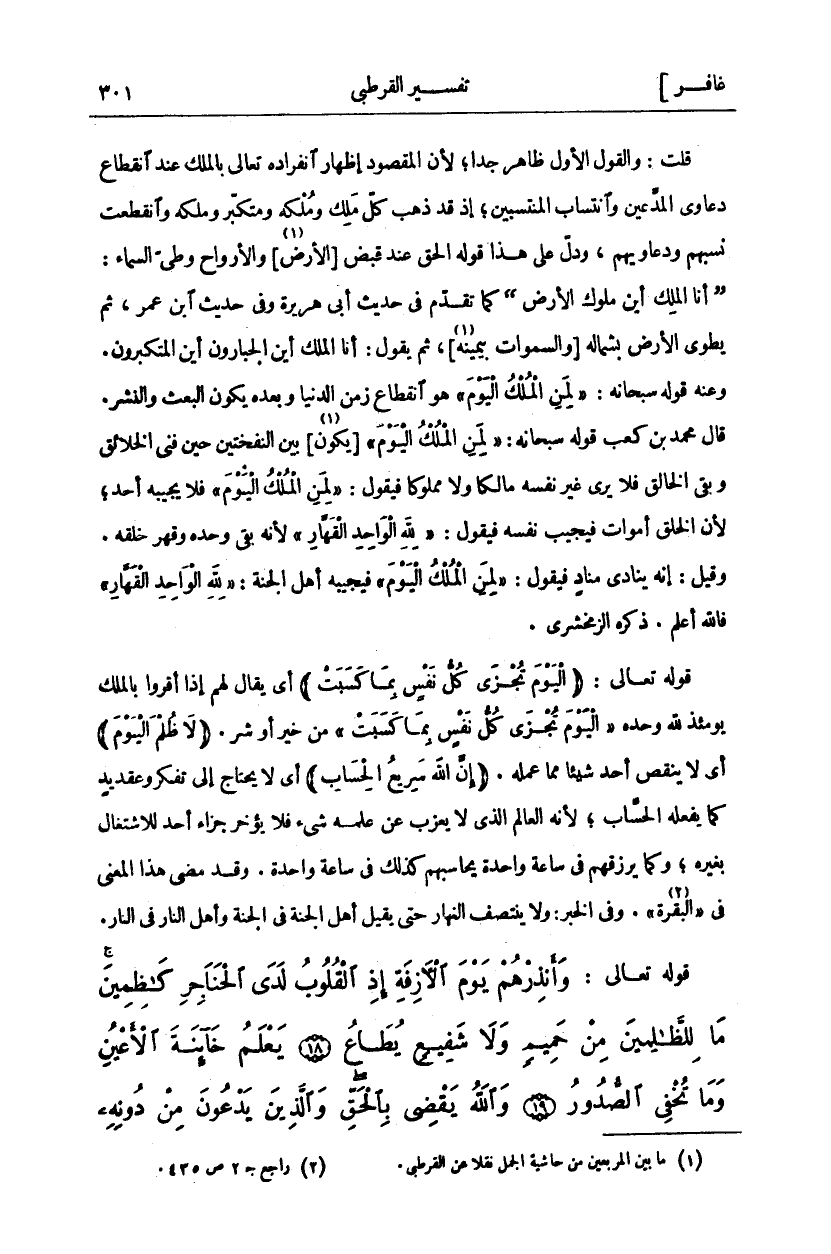 غافـــر ] تفســـير القرطبى ٣٠١
قلت : والقول الأول ظاهر جدا؛ لأن المقصود إظهار ٱنفراده تعالى بالملك عند ٱنقطاع
دعاوى المدَّعين وٱنتساب المنتسبين؛ إذ قد ذهب كلّ مَلِك ومُلْكه ومتكبّر وملكه وٱنقطعت
نسبهم ودعاويهم ، ودلّ على هـذا قوله الحق عند قبض [الأرض](١) والأرواح وطىّ السماء :
” أنا الملِك أين ملوك الأرض “ كما تقـدّم فى حديث أبى هريرة وفى حديث ٱبن عمر ، ثم
يطوى الأرض بشماله [والسموات بيمينه](١)، ثم يقول : أنا الملك أين الجبارون أين المتكبرون.
وعنه قوله سبحانه : « لِمَنِ الْمُلْكُ الْيَوْمَ» هو ٱنقطاع زمن الدنيا وبعده يكون البعث والنشر.
قال محمد بن كعب قوله سبحانه : « لِمَنِ الْمُلْكُ الْيَـوْمَ» [يكون](١) بين النفختين حين فنى الخلائق
وبقى الخالق فلا يرى غير نفسه مالكا ولا مملوكا فيقول : «لِمَنِ الْمُلْكُ الْيَوْمَ» فلا يجيبه أحد؛
لأن الخلق أموات فيجيب نفسه فيقول : « لِلّهِ الْوَاحِدِ الْقَهَّارِ » لأنه بقى وحده وقهر خلقه .
وقيل : إنه ينادى منادٍ فيقول : «لِمَنِ الْمُلْكُ الْيَوْمَ» فيجيبه أهل الجنة : «لِلّهِ الْوَاحِدِ الْقَهَّارِ»
فالله أعلم . ذكره الزمخشرى .
قوله تعـالى : ﴿ الْيَوْمَ تُجْـزَى كُلُّ نَفْسٍ بِمَـا كَسَبَتْ ﴾ أى يقال لهم إذا أقروا بالملك
يومئذ لله وحده « الْيَوْمَ تُجْـزَى كُلُّ نَفْسٍ بِمَـا كَسَبَتْ » من خير أو شر . ﴿ لَا ظُلْمَ الْيَوْمَ ﴾
أى لا ينقص أحد شيئا مما عمله . ﴿ إِنَّ اللهَ سَرِيعُ الْحِسَابِ ﴾ أى لا يحتاج إلى تفكر وعقد يد
كما يفعله الحسَّاب ؛ لأنه العالم الذى لا يعزب عن علمـه شىء فلا يؤخر جزاء أحد للاشتغال
بغيره ؛ وكما يرزقهم فى ساعة واحدة يحاسبهم كذلك فى ساعة واحدة . وقـد مضى هذا المعنى
فى «البقرة»(٢) . وفى الخبر : ولا ينتصف النهار حتى يقيل أهل الجنة فى الجنة وأهل النار فى النار.
قوله تعـالى : وَأَنذِرْهُمْ يَوْمَ ٱلْآزِفَةِ إِذِ ٱلْقُلُوبُ لَدَى ٱلْحَنَاجِرِ كَـٰظِمِينَ ۚ
مَا لِلظَّـٰلِمِينَ مِنْ حَمِيمٍ وَلَا شَفِيعٍ يُطَـاعُ ﴿١٨﴾ يَعْلَمُ خَآئِنَةَ ٱلْأَعْيُنِ
وَمَا تُخْفِى ٱلصُّدُورُ ﴿١٩﴾ وَٱللَّهُ يَقْضِى بِٱلْحَقِّ ۖ وَٱلَّذِينَ يَدْعُونَ مِنْ دُونِهِۦ
(١) ما بين المربعين من حاشية الجمل نقلا عن القرطبى . (٢) راجع جـ ٢ ص ٤٣٥ .